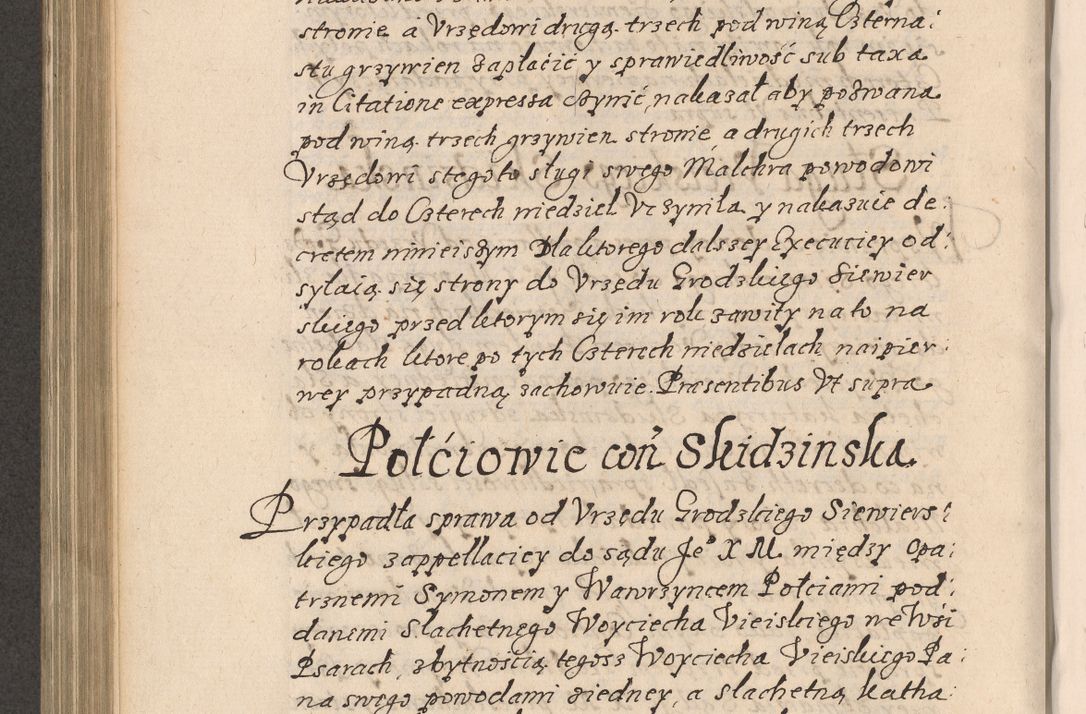 stronie a Vrzędowi drugą trzech pod winą Czterna:
stu grzywien zapłacić y sprawiedliwość sub taxa
in Citatione expressa czynić, nakazał aby pozwana
pod winą trzech grzywien stronie a drugich trzech
Vrzędowi stegoto sługi swego Malchra powodowi
stąd do Czterech niedziel Vczyniła y nakazuie de:
cretem ninieiszym Dla ktorego dalszey Execuciey od:
syłaią się strony do Vrzędu Grodzkiego Siewier
skiego przed ktorym się im rok zawity na to na
rokach ktore po tych Czterech niedzielach naipier:
wey przypadną zachowuie. Præsentibus Vt supra
Połćiowie coñ Skidzinska
Przypadła sprawa od Vrzędu Grodzkiego Siewiers:
kiego zappellaciey do sądu Je° X M. między Opa:
trznemi Symonem y Wawrzyncem Połciami pod:
danemi Slachetnego Woyciecha Vieiskiego we Wsi
Psarach, zbytnością tegosz Woyciecha Vieiskiego Pa:
na swego powodami ziedney, a slachetną Katha: